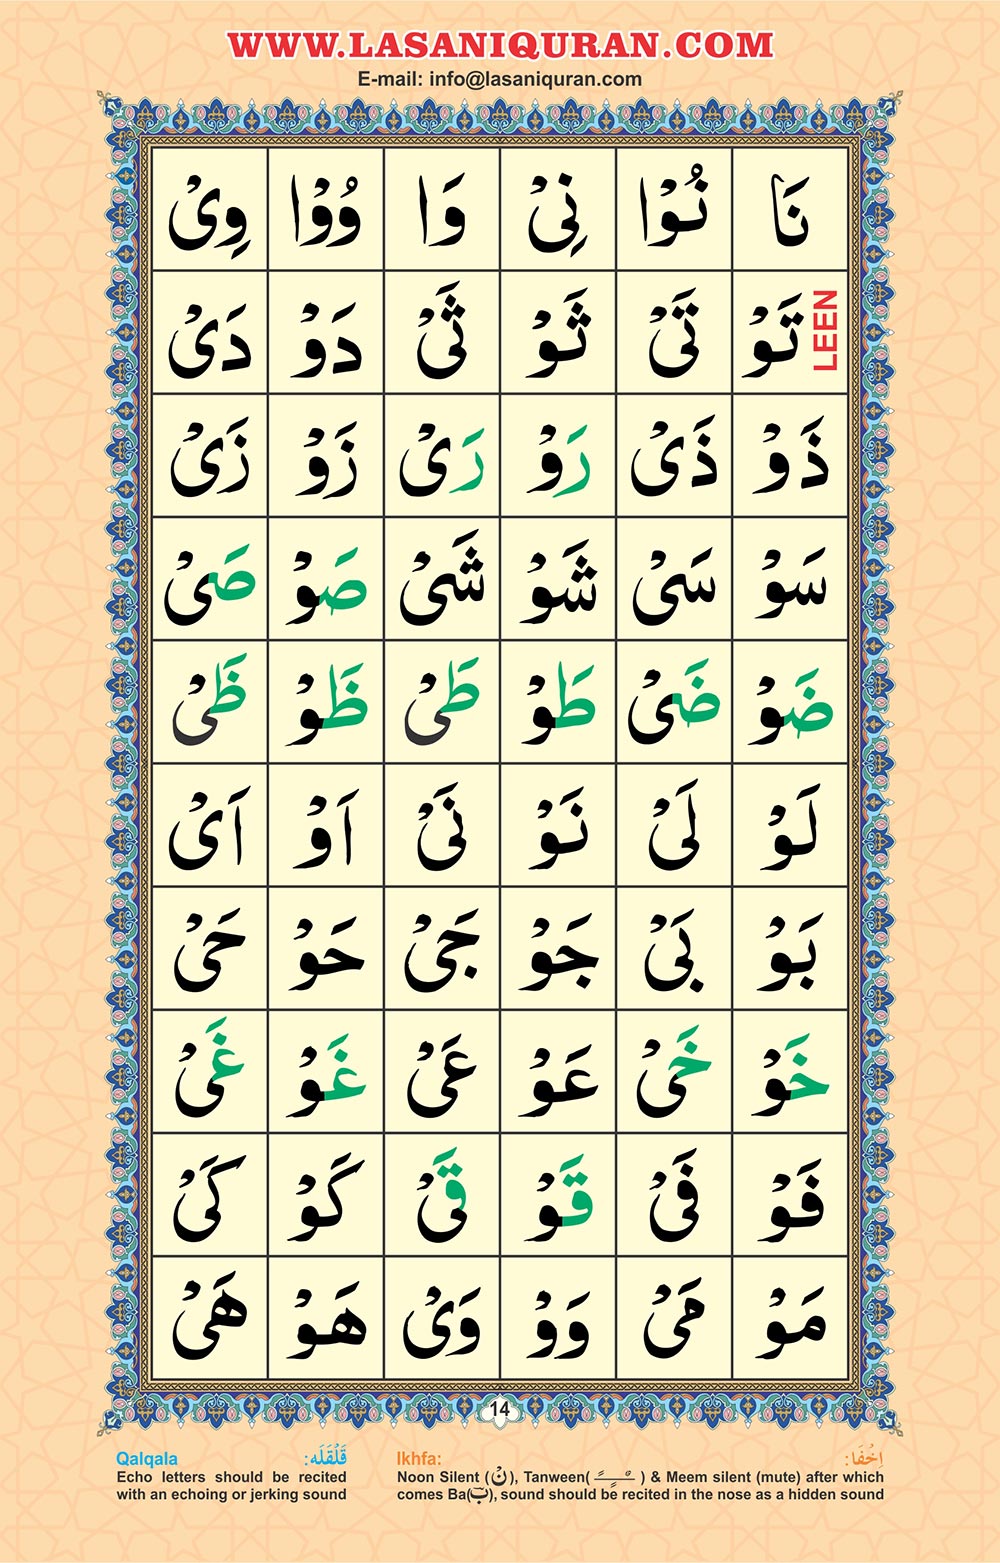 WWW.LASANIQURAN.COM
E-mail: info@lasaniquran.com
نَا نُوْا نِیْ وَا وُوْا وِیْ
LEEN
تَوْ تَیْ ثَوْ ثَیْ دَوْ دَیْ
ذَوْ ذَیْ رَوْ رَیْ زَوْ زَیْ
سَوْ سَیْ شَوْ شَیْ صَوْ صَیْ
ضَوْ ضَیْ طَوْ طَیْ ظَوْ ظَیْ
لَوْ لَیْ نَوْ نَیْ اَوْ اَیْ
بَوْ بَیْ جَوْ جَیْ حَوْ حَیْ
خَوْ خَیْ عَوْ عَیْ غَوْ غَیْ
فَوْ فَیْ قَوْ قَیْ کَوْ کَیْ
مَوْ مَیْ وَوْ وَیْ هَوْ هَیْ
14
Qalqala قَلْقَلَه:
Echo letters should be recited
with an echoing or jerking sound
Ikhfa: اِخْفَا:
Noon Silent (نْ), Tanween( ـًـٍـٌ ) & Meem silent (mute) after which
comes Ba(ب), sound should be recited in the nose as a hidden sound